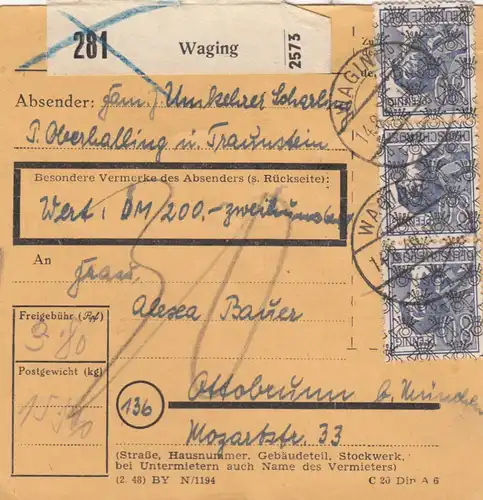 281 Waging 2573
Absender: Fam. Umkehrer Scharling
P. Oberhalling ü. Traunstein
Besondere Vermerke des Absenders (s. Rückseite):
Wert: DM 200.- zweihundert
An
Frau
Alesea Bauer
Freigebühr (Rpf)
3.80
Postgewicht (kg)
15
136
Ottobrunn b. München
Mozartstr. 33
(Straße, Hausnummer, Gebäudeteil, Stockwerk,
bei Untermietern auch Name des Vermieters)
(2. 48) BY N/1194 C 20 Din A 6
WAGING
WAGING
DEUTSCHE POST
PFENNIG
DEUTSCHE POST
PFENNIG
DEUTSCHE POST
PFENNIG